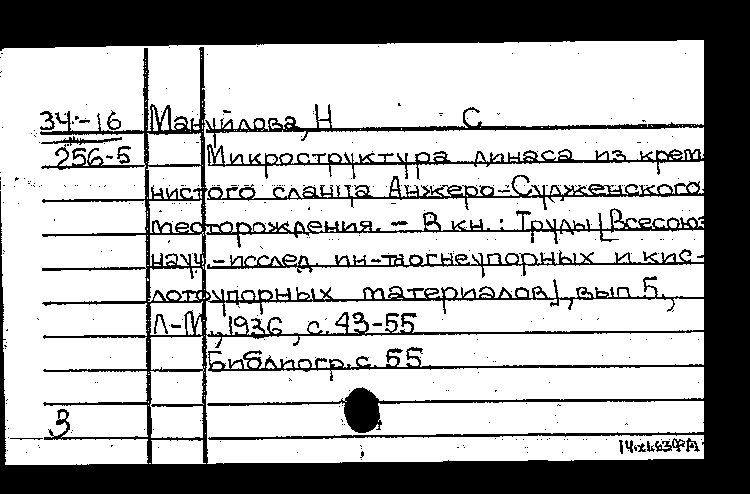 34-16 Мануйлова, Н С
256-5 Микроструктура динаса из крем
нистого сланца Анжеро-Судженского
месторождения. - В кн.: Труды [Всесоюз
науч.-исслед. ин-та огнеупорных и кис-
лотоупорных материалов], вып. 5,
Л-М., 1936, с. 43-55
Библиогр. с. 55
3